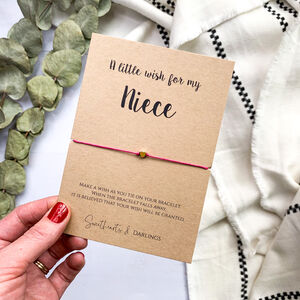 A little wish for my
Niece
MAKE A WISH AS YOU TIE ON YOUR BRACELET
WHEN THE BRACELET FALLS AWAY
IT IS BELIEVED THAT YOUR WISH WILL BE GRANTED
Sweethearts & DARLINGS